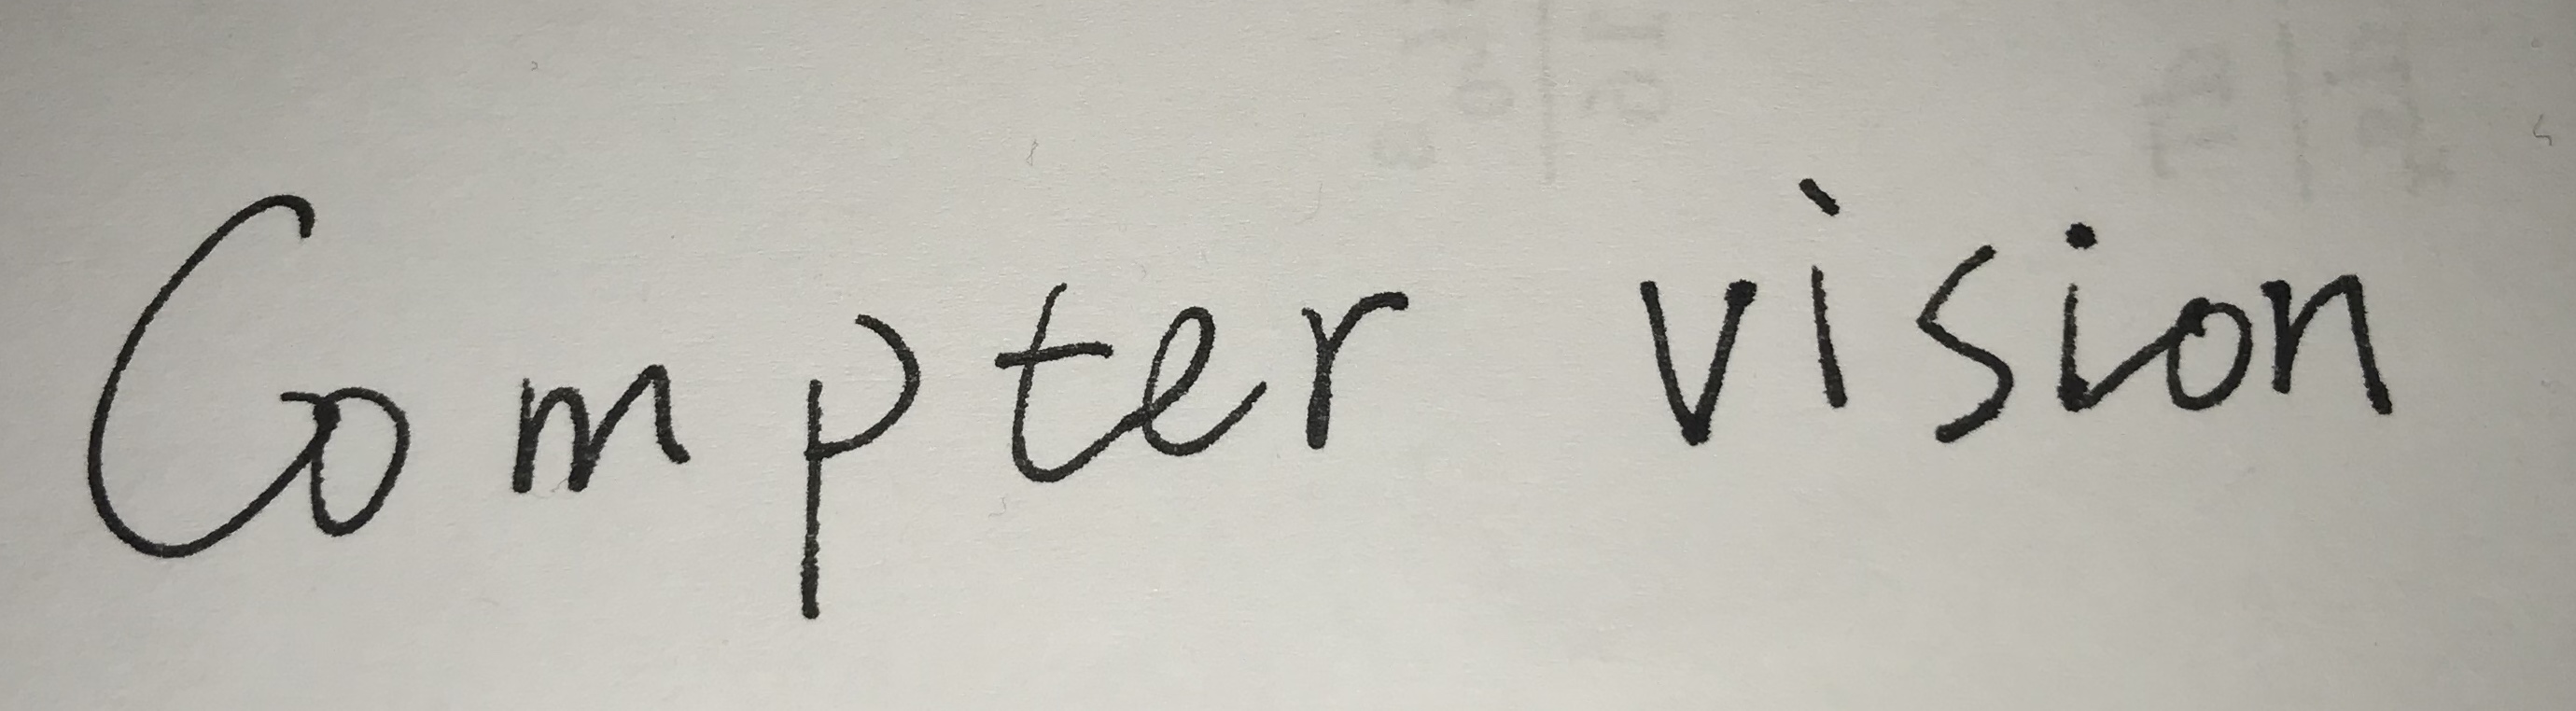 Compter vision